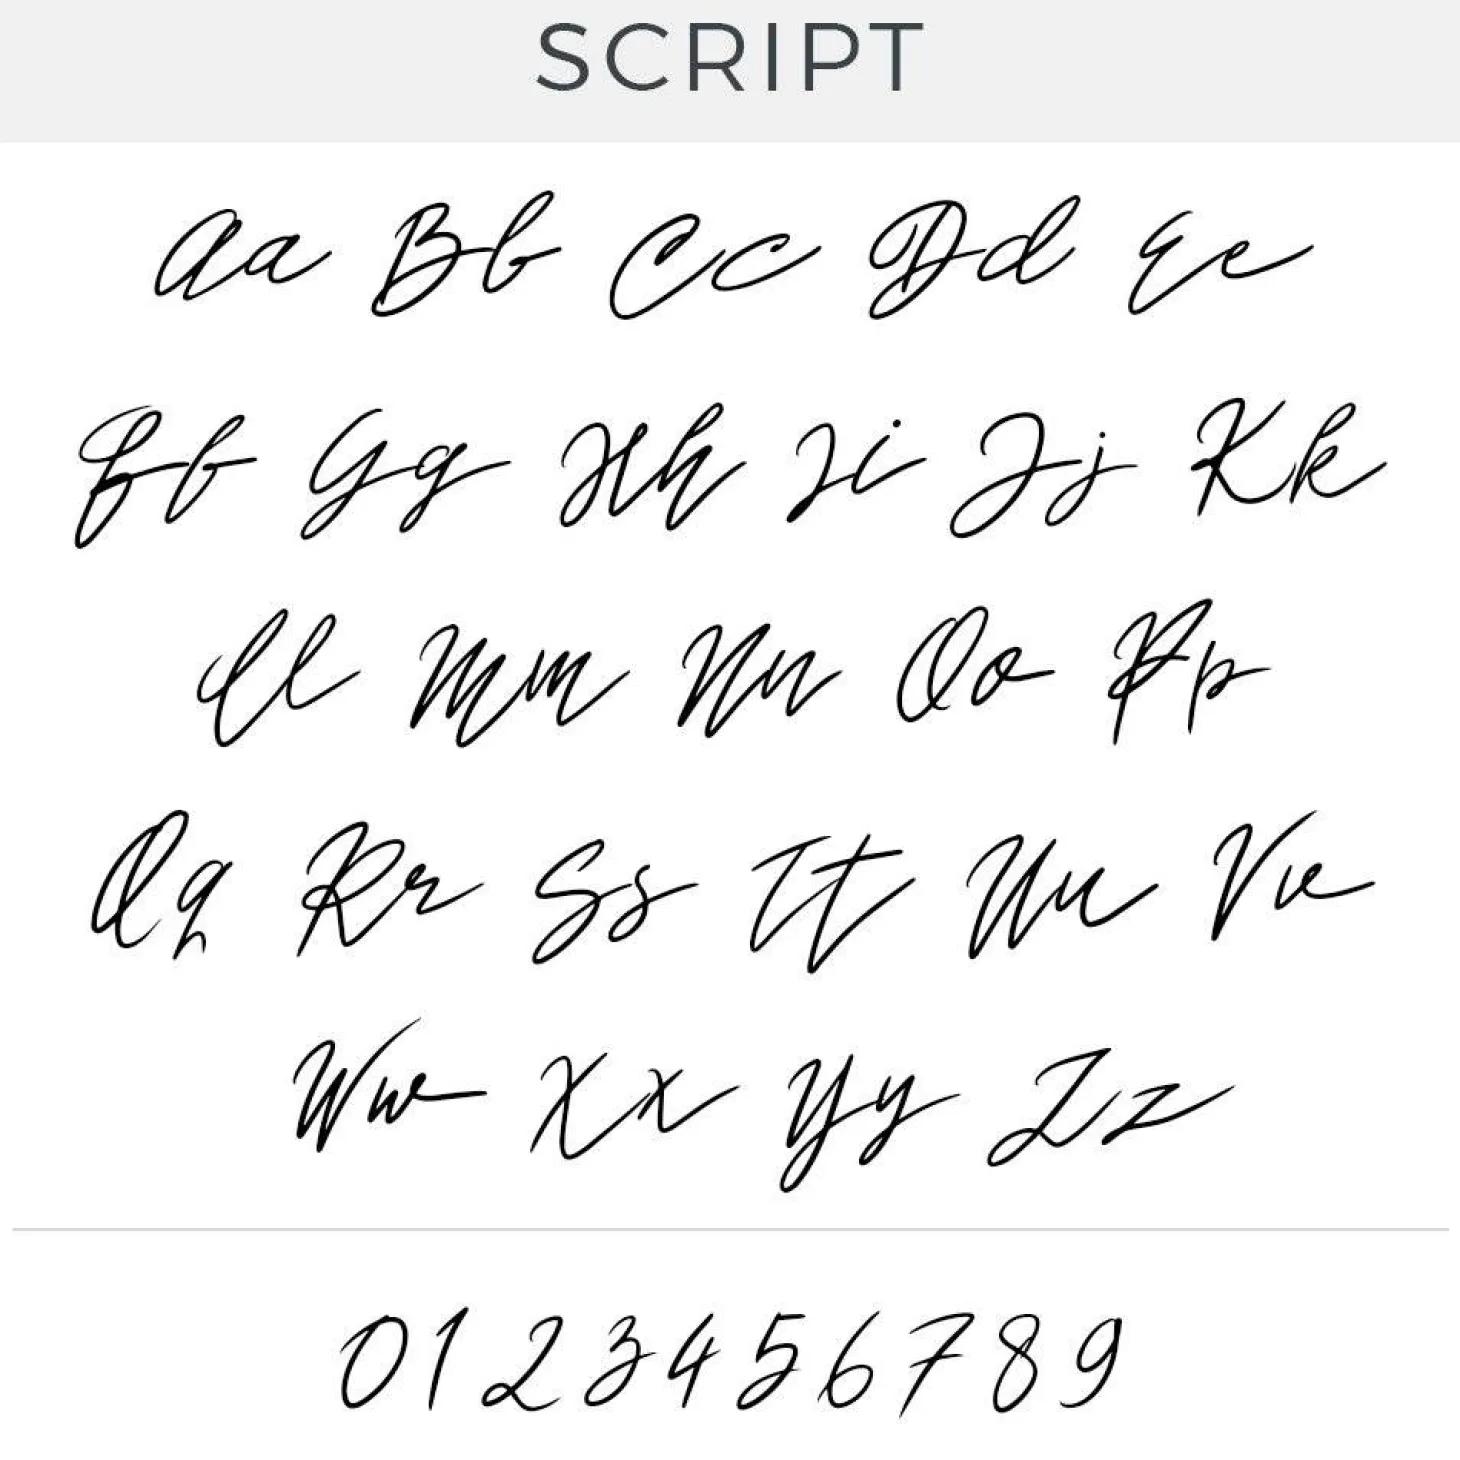 SCRIPT
Aa Bb Cc Dd Ee
Ff Gg Hh Ii Jj Kk
Ll Mm Nn Oo Pp
Qq Rr Ss Tt Uu Vv
Ww Xx Yy Zz
0 1 2 3 4 5 6 7 8 9